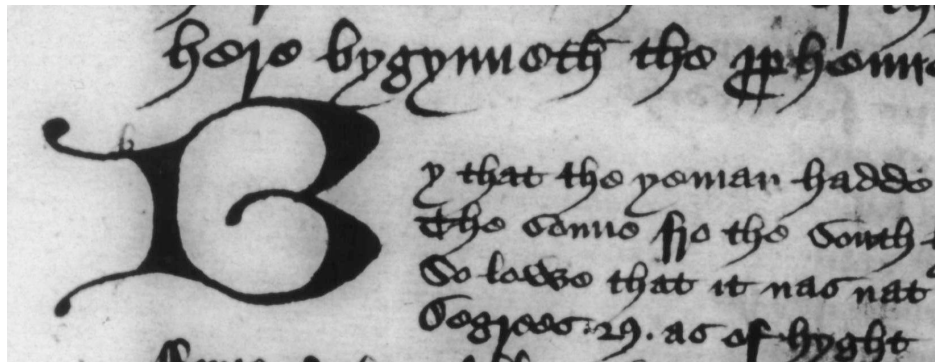 here bygynneth the
B
y that the yeman hadde
The sonne fro the South
So lowe that it nas nat
Degrees .29. as of hyght